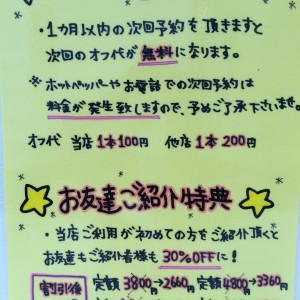 ・1カ月以内の次回予約を頂きますと
次回のオフ代が無料になります。
※ ホットペッパーやお電話での次回予約は
料金が発生致しますので、予めご了承下さいませ。
オフ代 当店 1本100円 他店 1本200円
お友達ご紹介特典
・当店ご利用が初めての方をご紹介頂くと
お友達もご紹介者様も 30%OFFに!
割引後 定額3800→2660円 定額4800→3360円